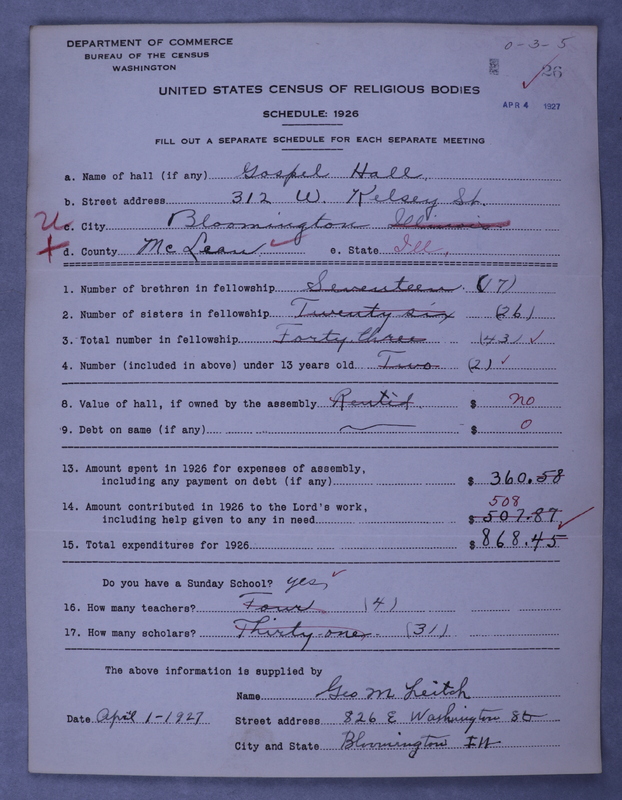 DEPARTMENT OF COMMERCE
BUREAU OF THE CENSUS
WASHINGTON
0-3-5
26
APR 4 1927
UNITED STATES CENSUS OF RELIGIOUS BODIES
SCHEDULE: 1926
FILL OUT A SEPARATE SCHEDULE FOR EACH SEPARATE MEETING
a. Name of hall (if any) Gospel Hall.
b. Street address 312 W. Kelsey St.
U c. City Bloomington Illinois
d. County McLean e. State Ill.
1. Number of brethren in fellowship Seventeen (17)
2. Number of sisters in fellowship Twenty six (26)
3. Total number in fellowship Forty three (43)
4. Number (included in above) under 13 years old Two (2)
8. Value of hall, if owned by the assembly Rented $ no
9. Debt on same (if any) $ 0
13. Amount spent in 1926 for expenses of assembly,
including any payment on debt (if any) $ 360.58
14. Amount contributed in 1926 to the Lord's work, 508
including help given to any in need $ 507.87
15. Total expenditures for 1926 $ 868.45
Do you have a Sunday School? yes,
16. How many teachers? Four (4)
17. How many scholars? Thirty-one. (31)
The above information is supplied by
Name Geo M Leitch
Date April 1-1927 Street address 826 E Washington St
City and State Bloomington Ill